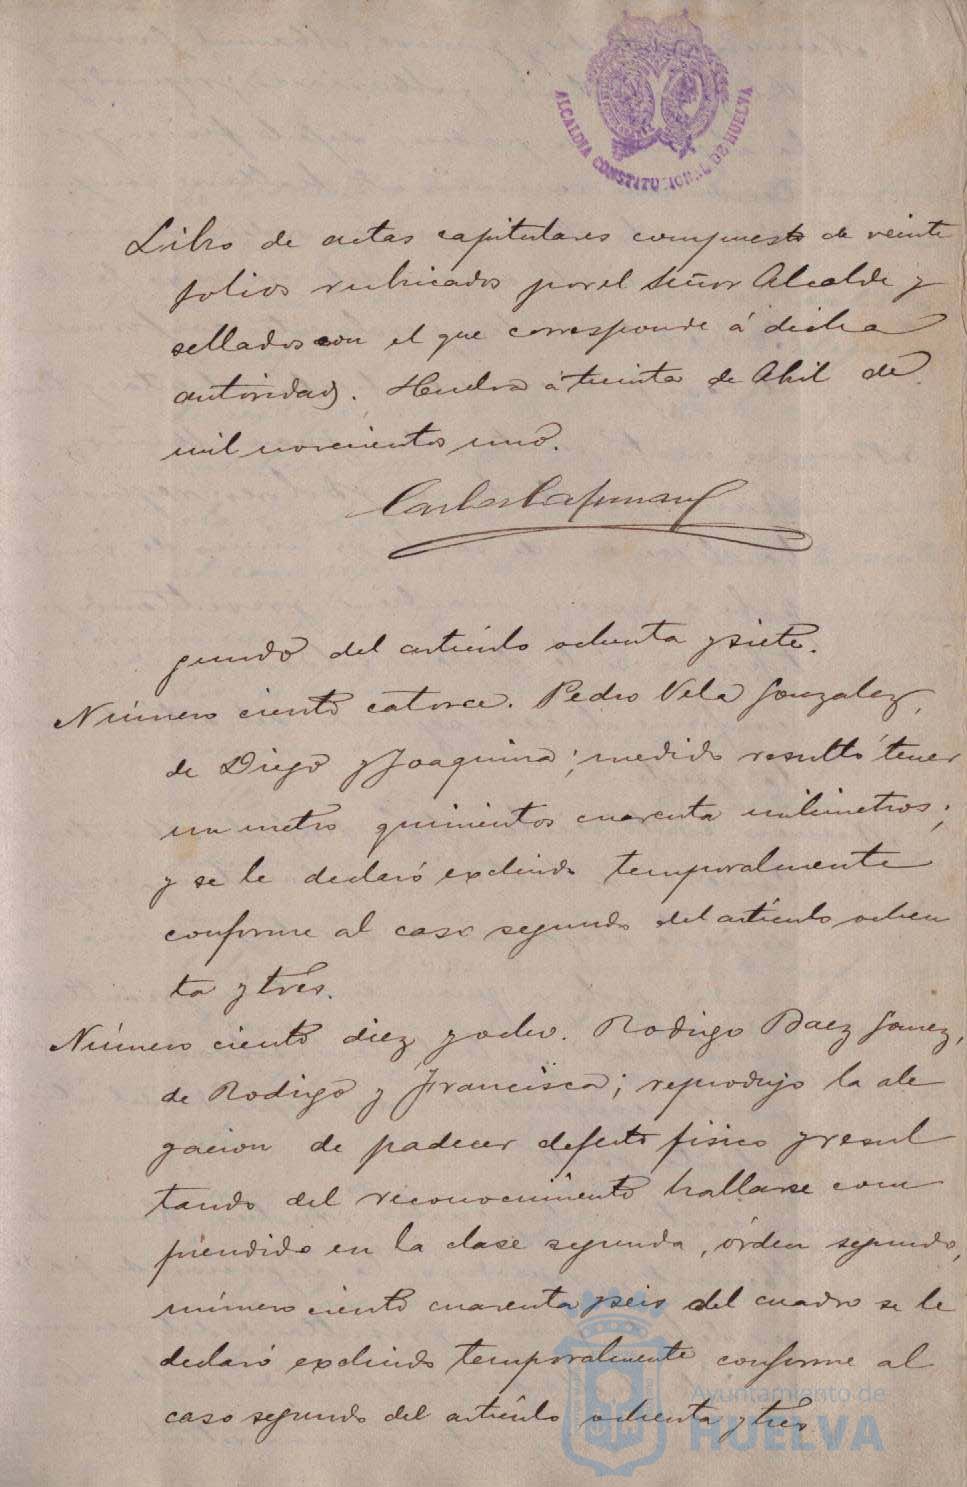 ALCALDIA CONSTITUCIONAL DE HUELVA
Libro de actas capitulares compuesto de veinte
folios rubricados por el Señor Alcalde y
sellados con el que corresponde á dicha
autoridad. Huelva á treinta de Abril de
mil novecientos uno.
gundo del artículo ochenta y siete.
Número ciento catorce. Pedro Vela Gonzalez,
de Diego y Joaquina; medido resultó tener
un metro quinientos cuarenta milimetros;
y se le declaró excluido temporalmente
conforme al caso segundo del artículo ochen
ta y tres.
Número ciento diez y ocho. Rodrigo Baez Gomez,
de Rodrigo y Francisca; reprodujo la ale
gacion de padecer defecto fisico y resul
tando del reconocimiento hallarse com
prendido en la clase segunda, órden segundo,
número ciento cuarenta y seis del cuadro se le
declaró excluido temporalmente conforme al
caso segundo del artículo ochenta y tres
Ayuntamiento de
HUELVA